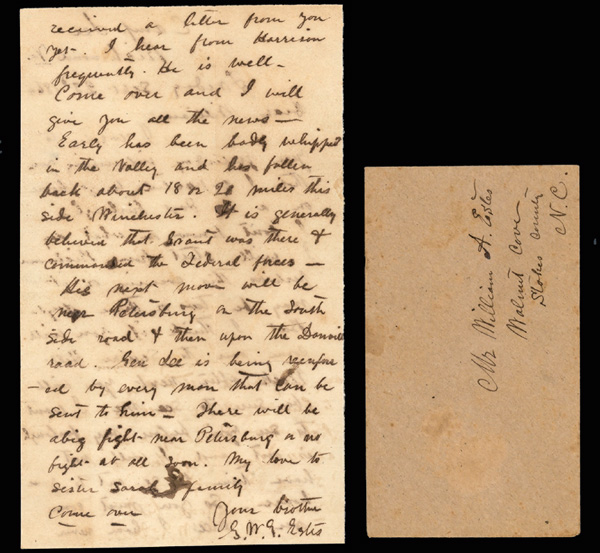 received a letter from you
yet. I hear from Harrison
frequently. He is well -
Come over and I will
give you all the news —
Early has been badly whipped
in the Valley and has fallen
back about 18 or 20 miles this
side Winchester. It is generally
believed that Grant was there &
commanded the Federal forces —
His next move will be
near Petersburg on the South
side road & then upon the Danville
road. Gen Lee is being reinforc
- ed by every man that can be
sent to him - There will be
a big fight near Petersburg or no
fight at all soon. My love to
sister Sarah & family
Come over
Your brother
G.W.G. Estes
Mr William A. Estes
Walnut Cove
Stokes County
N.C.